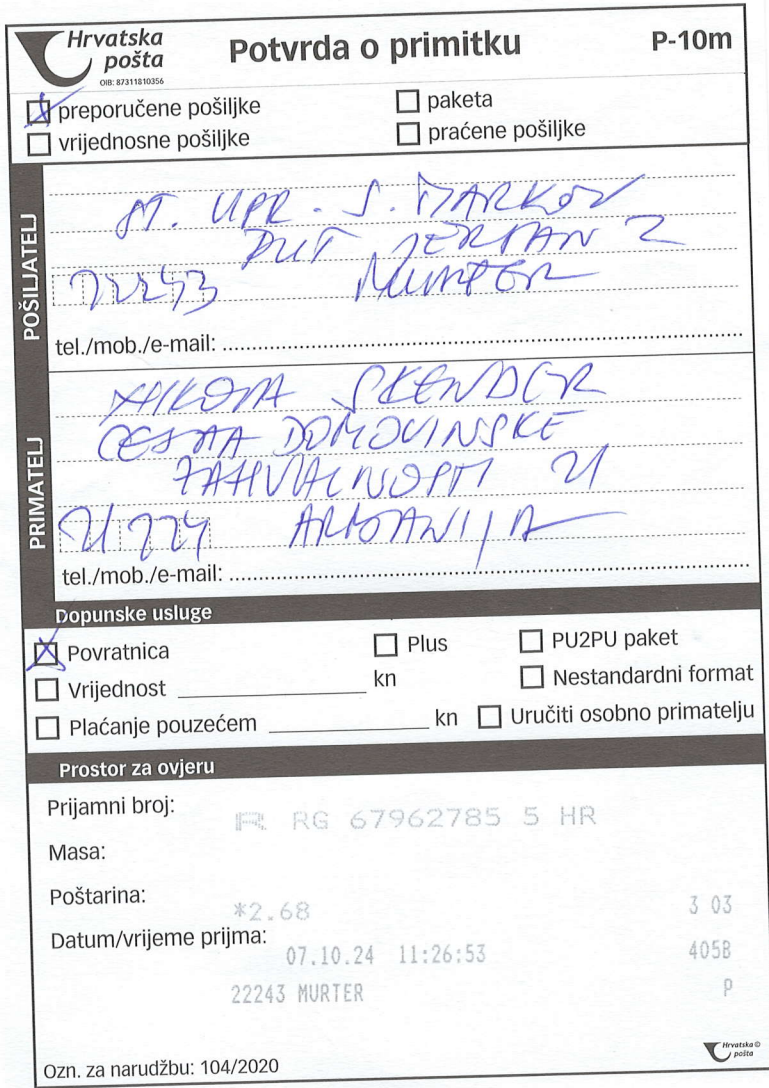 Hrvatska pošta
OIB: 87311810356
Potvrda o primitku
P-10m
☒ preporučene pošiljke
☐ paketa
☐ vrijednosne pošiljke
☐ praćene pošiljke
POŠILJATELJ
ST. UPR. - S. MARKOV
PUT JERSAN 2
22243 MURTER
tel./mob./e-mail:
PRIMATELJ
SKENDER
CESTA DOMOVINSKE
ZAHVALNOSTI 21
ARBANIJA
tel./mob./e-mail:
Dopunske usluge
☒ Povratnica
☐ Plus
☐ PU2PU paket
☐ Vrijednost kn
☐ Nestandardni format
☐ Plaćanje pouzećem kn
☐ Uručiti osobno primatelju
Prostor za ovjeru
Prijamni broj: R RG 67962785 5 HR
Masa:
Poštarina: *2.68 3 03
Datum/vrijeme prijma: 07.10.24 11:26:53 405B
22243 MURTER P
Ozn. za narudžbu: 104/2020
Hrvatska pošta